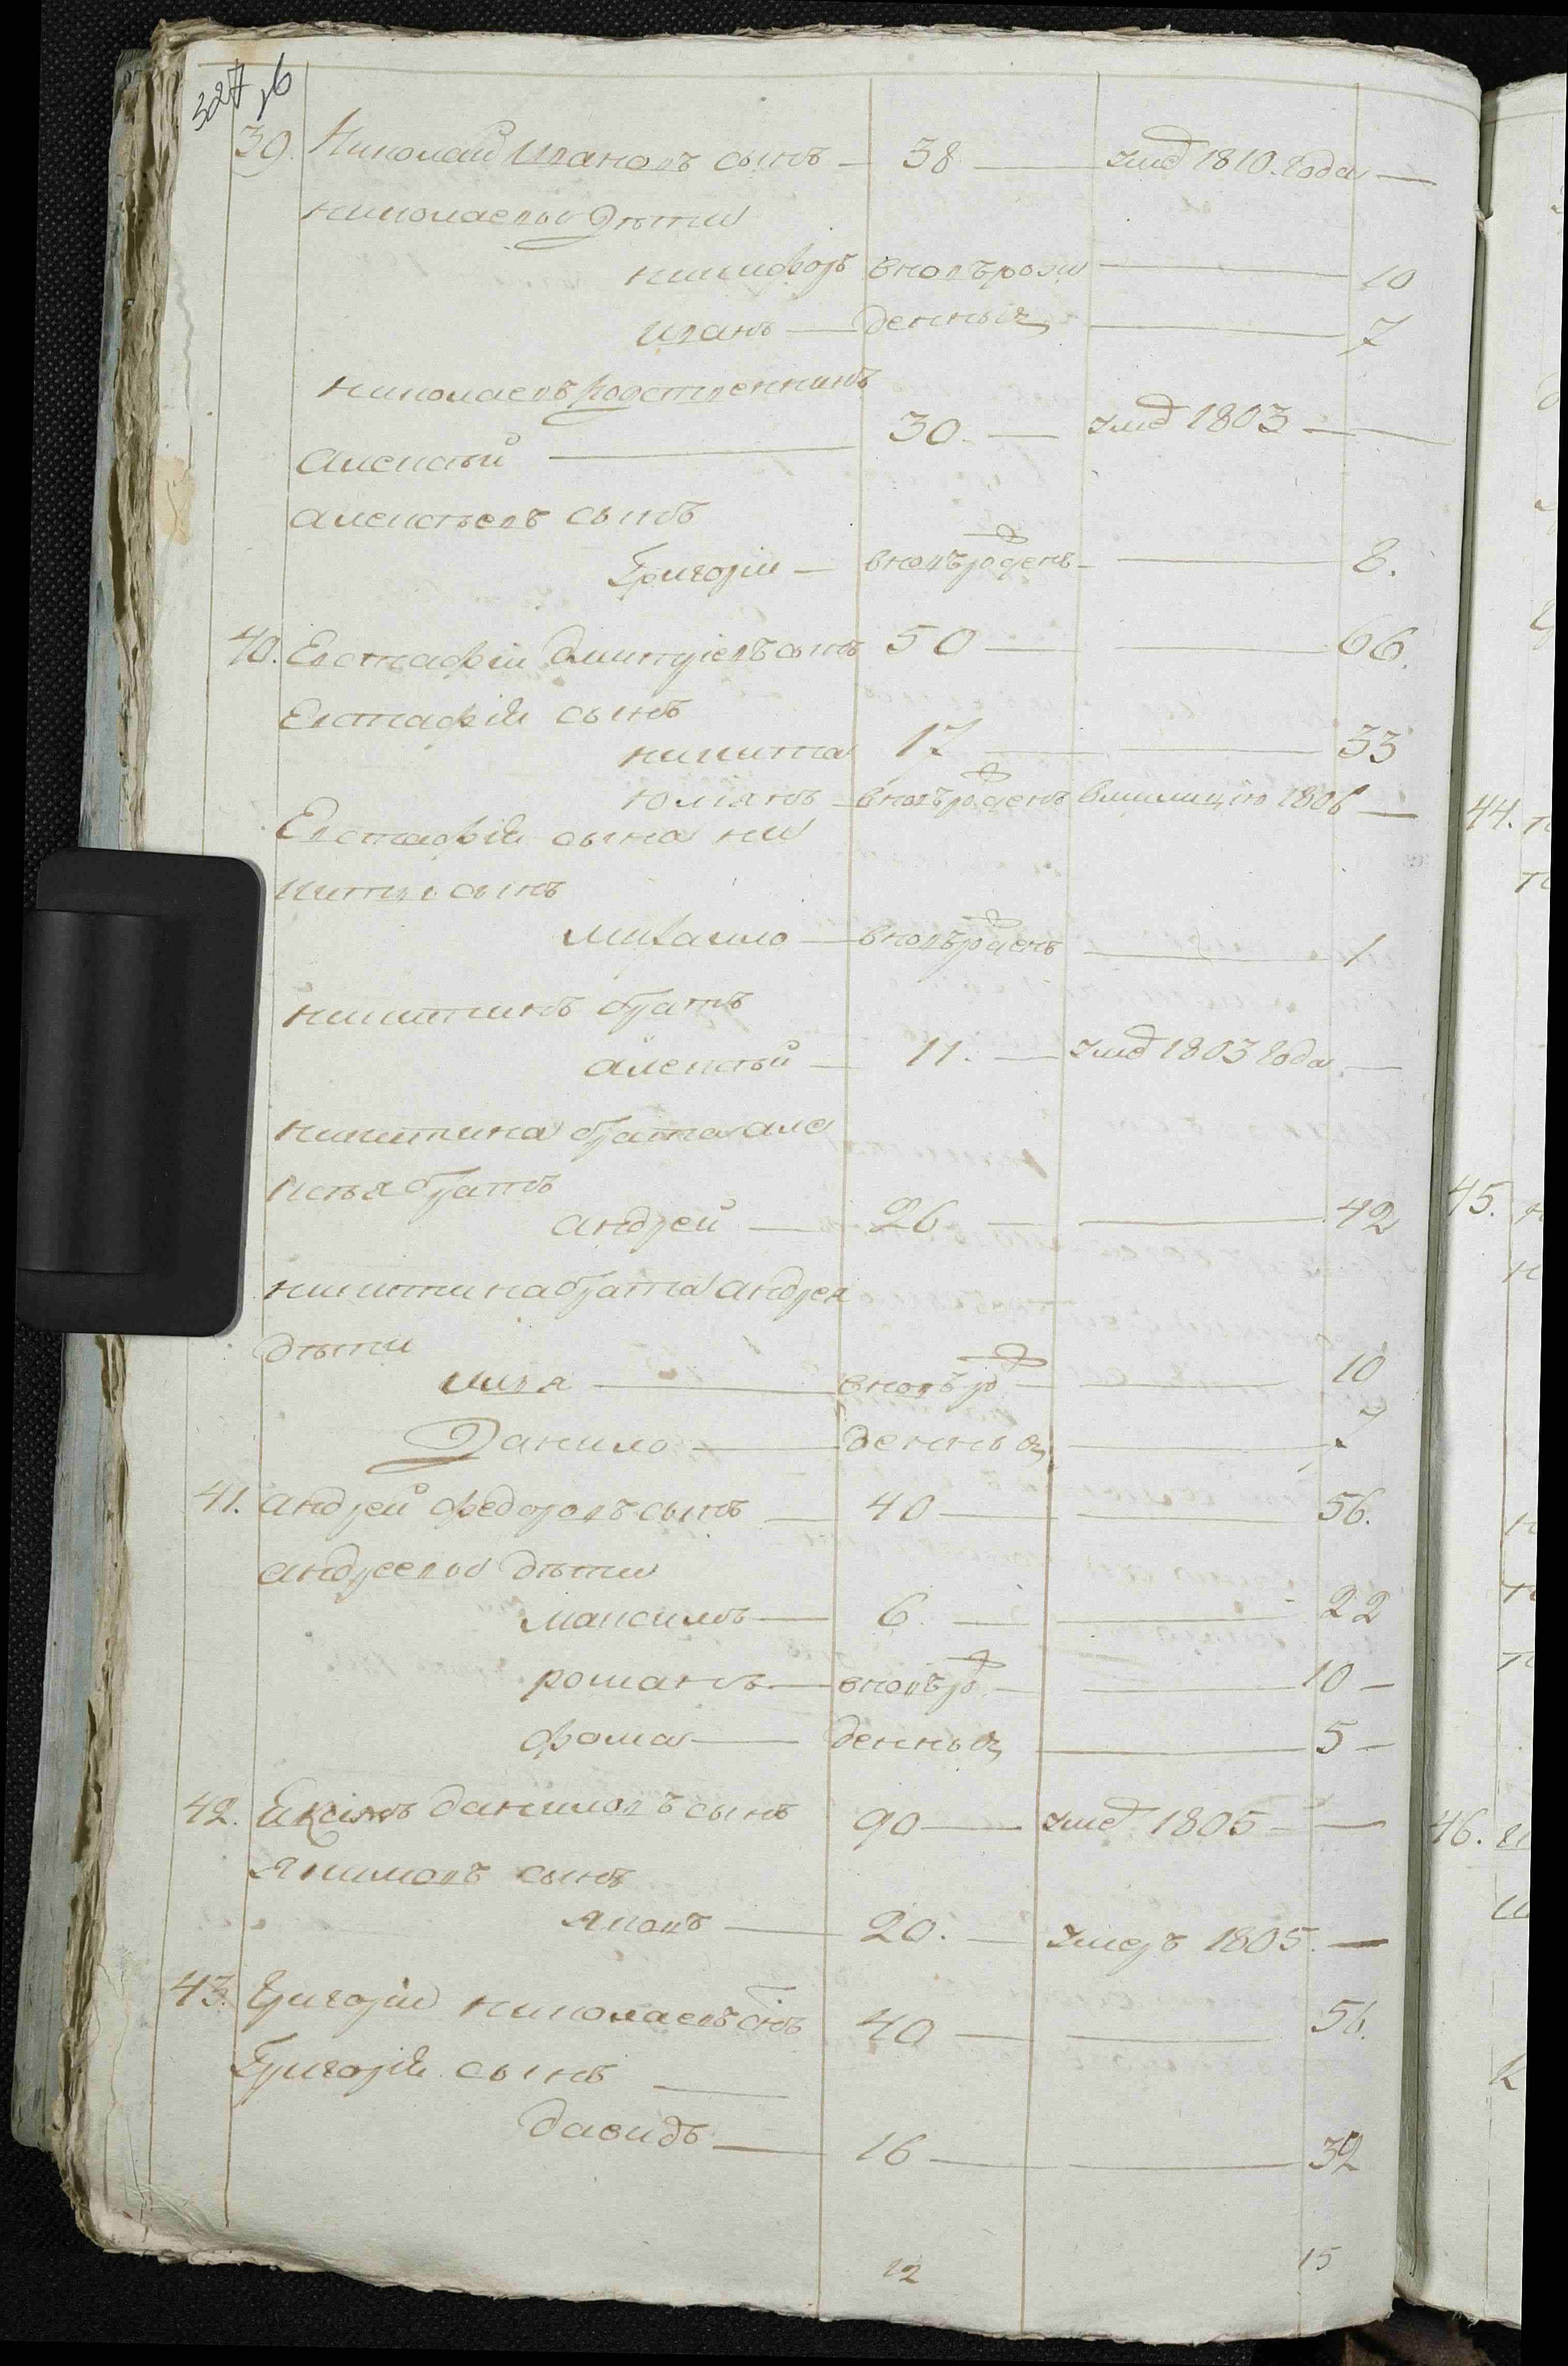 327 об
39. Николай Ивановъ сынъ — 38 — умер 1810. года —
Николаевы дѣти
никифоръ вновърож — 10
иванъ — денныя — 7
николаевъ родственникъ
алексѣй — 30. — умер 1803 —
алексѣевъ сынъ
Григорiй — вновърожденъ — 8.
40. Евстафiй дмитрiевъ сынъ 50 — 66.
Евстафiя сынъ
никита 17 — 33
юлiянъ — вновърожденъ вмилицiю 1806 —
Евстафiя сына ни
киты сынъ
михаило — вновърожденъ — 1
никитинъ братъ
алексѣй — 11. — умер 1803 года —
никитина брата але
ксѣя братъ
андрей — 26 — 42
никитина брата андрея
дѣти
илья — вновърож — 10
Данило — денныя — 7
41. андрей федоровъ сынъ — 40 — 56.
андреевы дѣти
максимъ — 6. — 22
романъ — вновърож — 10 —
фома — денныя — 5 —
42. даниловъ сынъ 90 — умер 1805 —
Якимовъ сынъ
яковъ — 20. — умеръ 1805. —
43. Григорiй николаевъ снъ 40 — 56.
Григорiя сынъ —
давидъ — 16 — 32
12 15
44.
45.
46.